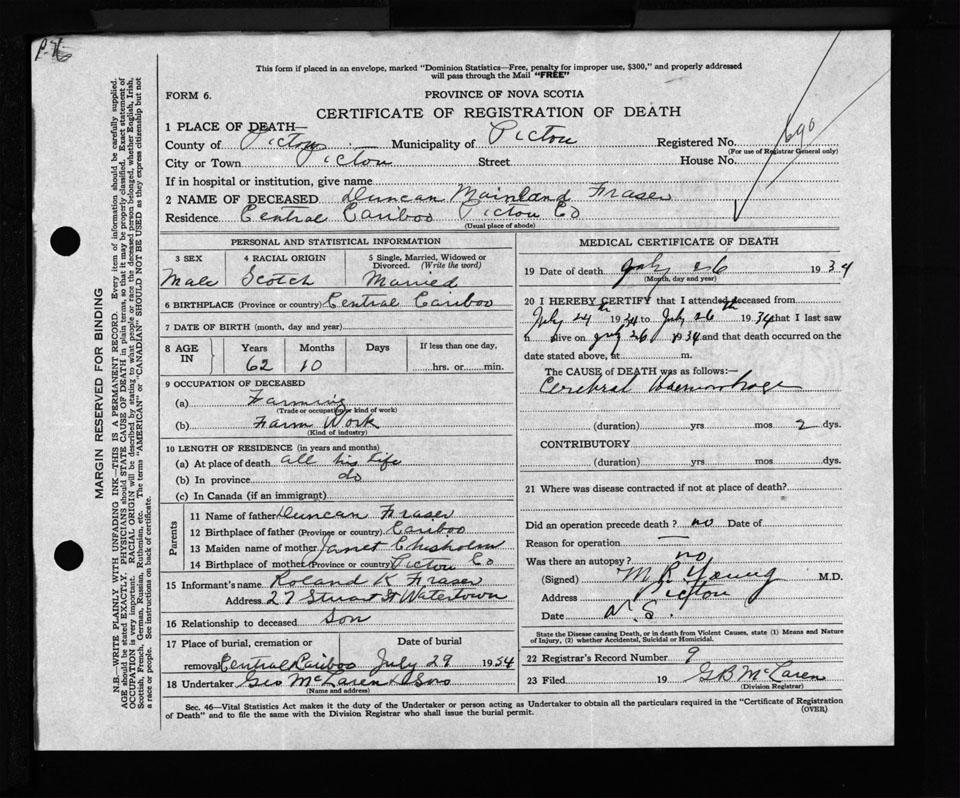 This form if placed in an envelope, marked "Dominion Statistics—Free, penalty for improper use, $300," and properly addressed
will pass through the Mail "FREE"
FORM 6. PROVINCE OF NOVA SCOTIA
CERTIFICATE OF REGISTRATION OF DEATH
1 PLACE OF DEATH—
County of Pictou Municipality of Pictou Registered No. 690
(For use of Registrar General only)
City or Town Pictou Street House No.
If in hospital or institution, give name
2 NAME OF DECEASED Duncan Mainland Fraser
Residence Central Cariboo Pictou Co
(Usual place of abode)
PERSONAL AND STATISTICAL INFORMATION
3 SEX 4 RACIAL ORIGIN 5 Single, Married, Widowed or
Divorced. (Write the word)
Male Scotch Married
6 BIRTHPLACE (Province or country) Central Cariboo
7 DATE OF BIRTH (month, day and year)
8 AGE IN Years Months Days If less than one day,
62 10 hrs. or min.
9 OCCUPATION OF DECEASED
(a) Farming
(Trade or occupation or kind of work)
(b) Farm Work
(Kind of industry)
10 LENGTH OF RESIDENCE (in years and months)
(a) At place of death all his life
(b) In province do
(c) In Canada (if an immigrant)
Parents
11 Name of father Duncan Fraser
12 Birthplace of father (Province or country) Cariboo
13 Maiden name of mother Janet Chisholm
14 Birthplace of mother (Province or country) Pictou Co
15 Informant's name Roland K Fraser
Address 27 Stuart St Watertown
16 Relationship to deceased Son
17 Place of burial, cremation or Date of burial
removal Central Cariboo July 29 1934
18 Undertaker Geo McLaren & Sons
(Name and address)
MEDICAL CERTIFICATE OF DEATH
19 Date of death July 26 1934
(Month, day and year)
20 I HEREBY CERTIFY that I attended deceased from
July 24th 1934 to July 26th 1934 that I last saw
h alive on July 26 1934 and that death occurred on the
date stated above, at m.
The CAUSE of DEATH was as follows:—
Cerebral Haemorrhage
(duration) yrs mos 2 dys.
CONTRIBUTORY
(duration) yrs mos dys.
21 Where was disease contracted if not at place of death?
Did an operation precede death? no Date of
Reason for operation —
Was there an autopsy? no
(Signed) M R Young M.D.
Address Pictou
Date N.S.
State the Disease causing Death, or in death from Violent Causes, state (1) Means and Nature
of Injury, (2) whether Accidental, Suicidal or Homicidal.
22 Registrar's Record Number 9
23 Filed 19 G B McLaren
(Division Registrar)
Sec. 46—Vital Statistics Act makes it the duty of the Undertaker or person acting as Undertaker to obtain all the particulars required in the "Certificate of Registration
of Death" and to file the same with the Division Registrar who shall issue the burial permit. (OVER)
MARGIN RESERVED FOR BINDING
N.B.—WRITE PLAINLY WITH UNFADING INK—THIS IS A PERMANENT RECORD. Every item of information should be carefully supplied.
AGE should be stated EXACTLY. PHYSICIANS should STATE CAUSE OF DEATH in plain terms, so that it may be properly classified. Exact statement of
OCCUPATION is very important. RACIAL ORIGIN will be described by stating to what people or race the deceased person belonged, whether English, Irish,
Scottish, French, German, Russian, Ruthenian, etc. The terms "AMERICAN" or "CANADIAN" SHOULD NOT BE USED as they express citizenship but not
a race or people. See instructions on back of certificate.